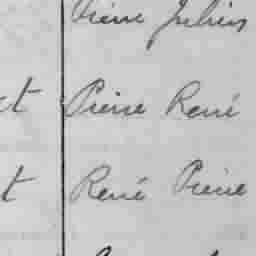 Pierre Julien
ct Pierre René
t René Pierre